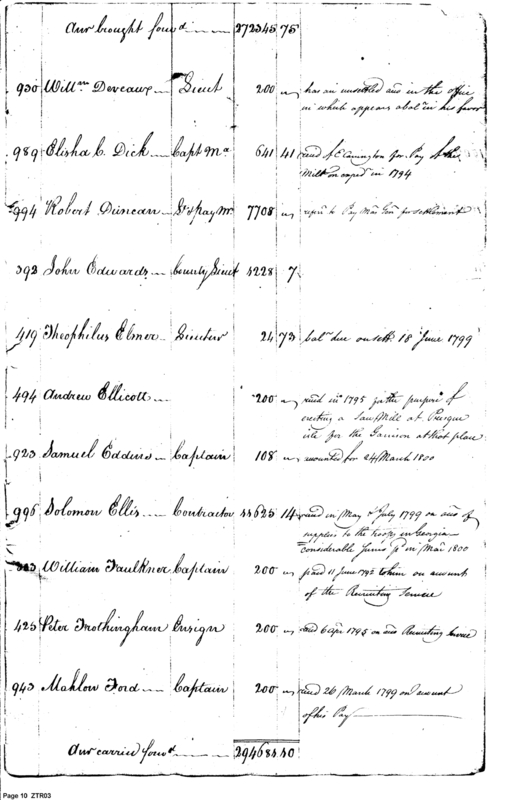 Amt brought forwd 272345 75
930 Willm Deveaux Lieut 200 " has an unsettled acct in the office
in which appears a balce in his favor
989 Elisha C. Dick Capt Ma 641 41 for Pay of the
Milt in 1794
994 Robert Duncan Lt & Pay Mr 7708 " refer'd to Pay Mas Genl for settlement
392 John Edwards County Lieut 4228 7
419 Theophilus Elmer 24 73 balce due on settt 18 June 1799
494 Andrew Ellicott 200 " recd in 1795 for the purpose of
erecting a Saw Mill at Presque
isle for the Garrison at that place
923 Samuel Eddins Captain 108 " accounted for 24 March 1800
996 Solomon Ellis Contractor 14 recd in May & July 1799 on acct of
supplies to the troops in Georgia
considerable in Mar 1800
William Faulkner Captain 200 " paid 11 June 1792 to him on account
of the Recruiting Service
425 Peter Frothingham Ensign 200 " recd 6 Apr 1795 on acct Recruiting Service
943 Mahlon Ford Captain 200 " recd 26 March 1799 on account
of his Pay
Amt carried forwd 294684 40
Page 10 ZTR03